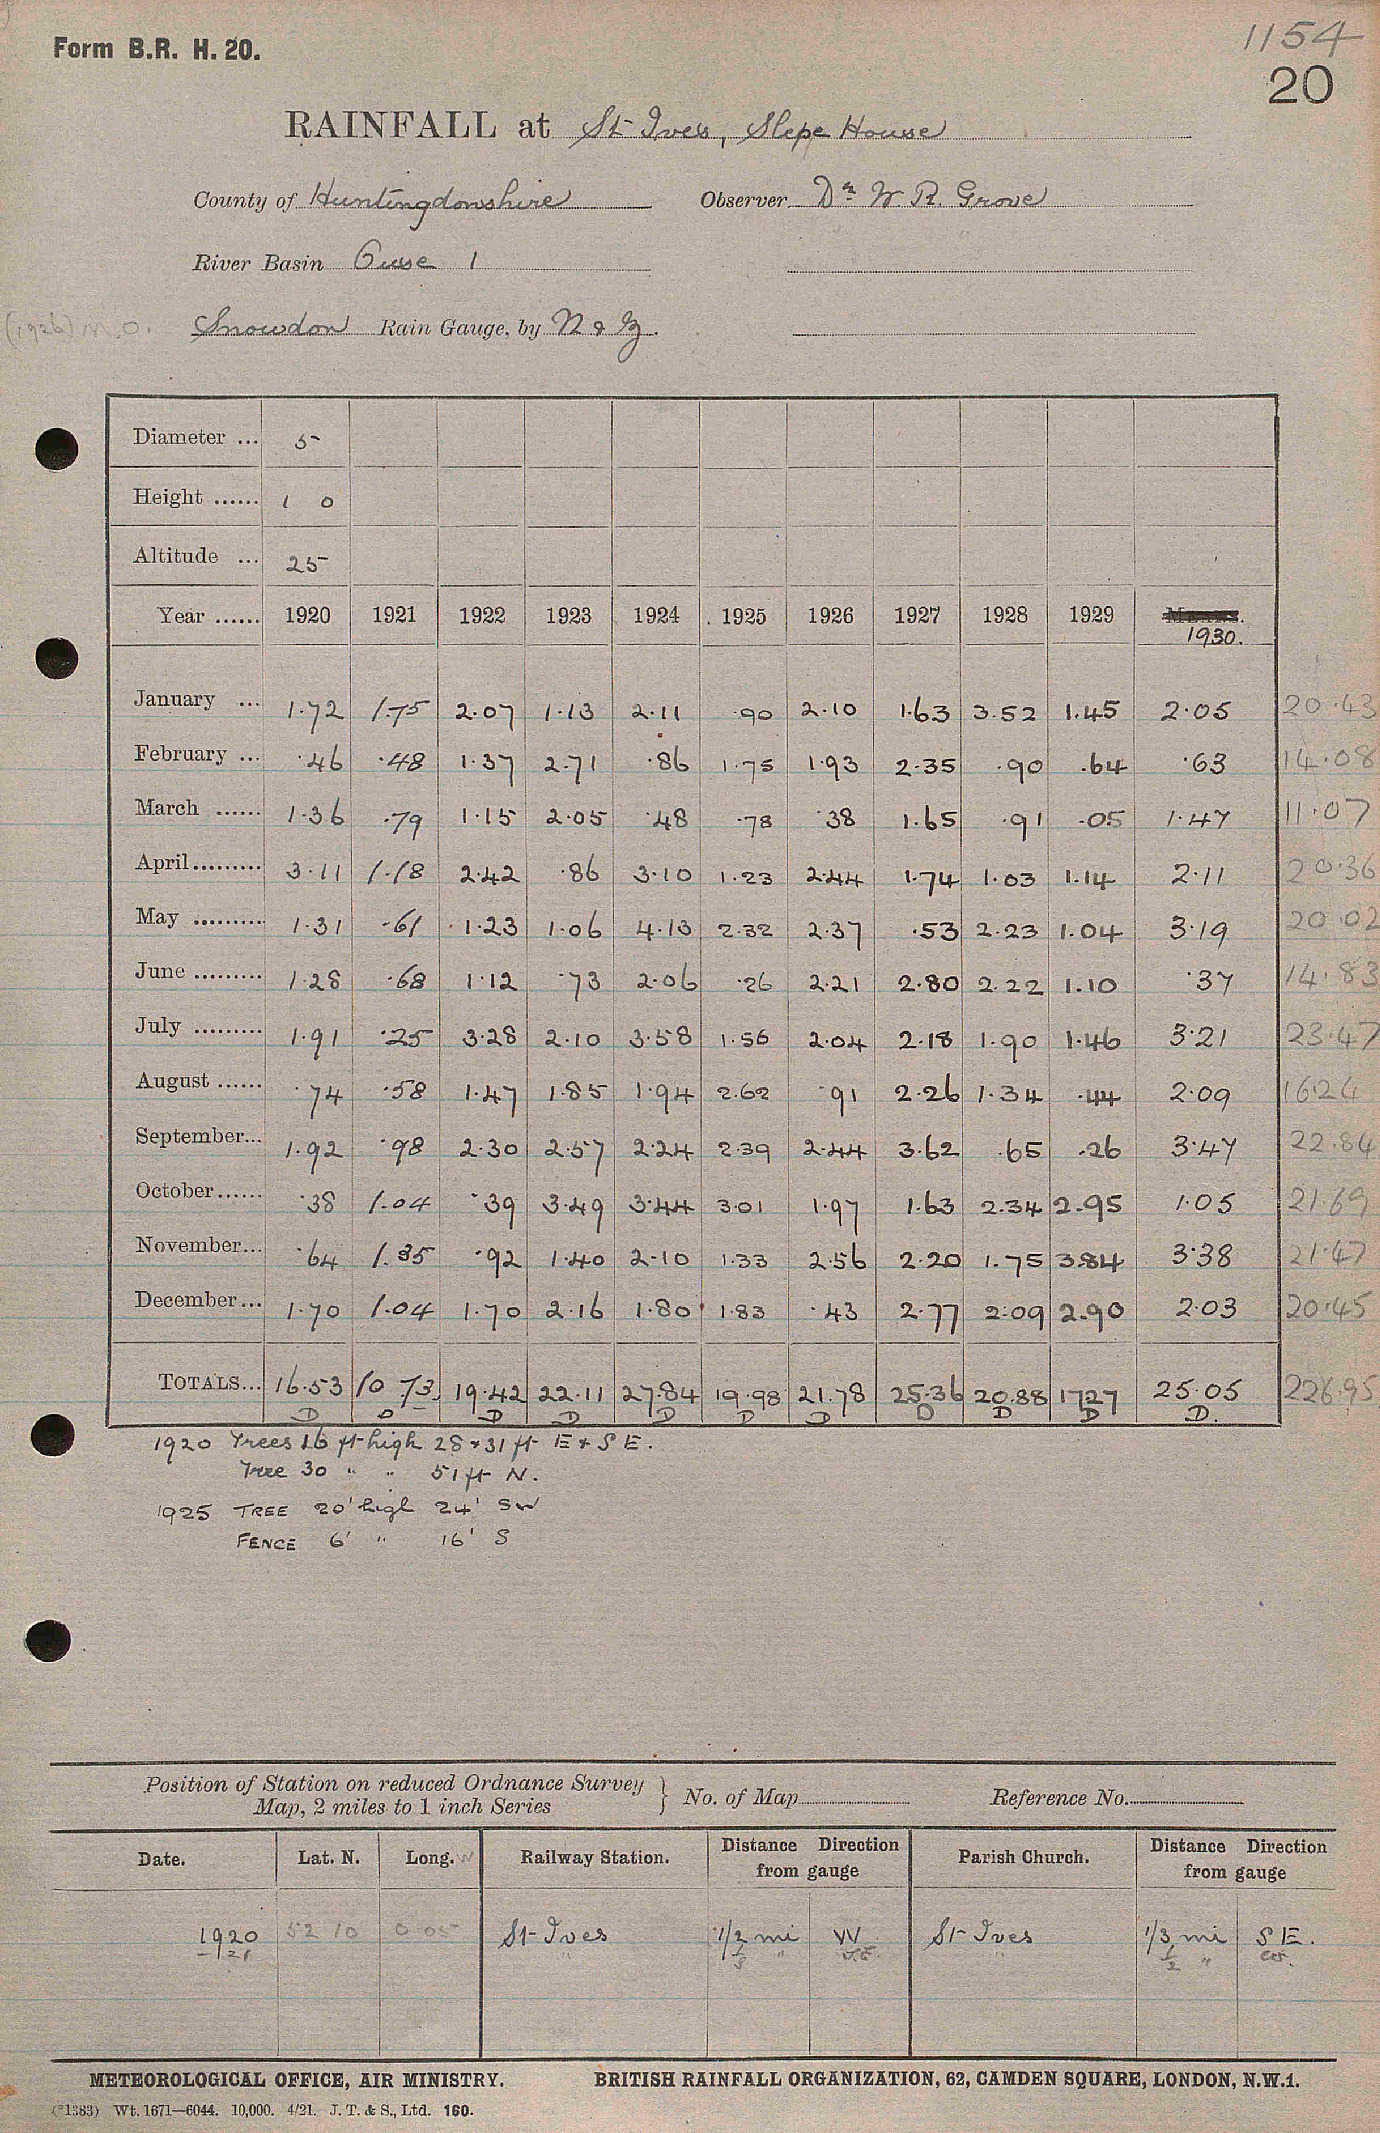 Form B.R. H. 20.
1154
20
RAINFALL at St Ives, Slepe House
County of Huntingdonshire Observer Dr. W. R. Grove
River Basin Ouse 1
(1926) M.O. Snowdon Rain Gauge, by N & Z.
Diameter ... 5
Height ...... 1 0
Altitude ... 25
Year ...... 1920 1921 1922 1923 1924 1925 1926 1927 1928 1929 1930.
January ... 1.72 1.75 2.07 1.13 2.11 .90 2.10 1.63 3.52 1.45 2.05 20.43
February ... .46 .48 1.37 2.71 .86 1.75 1.93 2.35 .90 .64 .63 14.08
March ...... 1.36 .79 1.15 2.05 .48 .78 .38 1.65 .91 .05 1.47 11.07
April ......... 3.11 1.18 2.42 .86 3.10 1.23 2.44 1.74 1.03 1.14 2.11 20.36
May ......... 1.31 .61 1.23 1.06 4.13 2.32 2.37 .53 2.23 1.04 3.19 20.02
June ......... 1.28 .68 1.12 .73 2.06 .26 2.21 2.80 2.22 1.10 .37 14.83
July ......... 1.91 .25 3.28 2.10 3.58 1.56 2.04 2.18 1.90 1.46 3.21 23.47
August ...... .74 .58 1.47 1.85 1.94 2.62 .91 2.26 1.34 .44 2.09 16.24
September... 1.92 .98 2.30 2.57 2.24 2.39 2.44 3.62 .65 .26 3.47 22.84
October...... .38 1.04 .39 3.49 3.44 3.01 1.97 1.63 2.34 2.95 1.05 21.69
November... .64 1.35 .92 1.40 2.10 1.33 2.56 2.20 1.75 3.84 3.38 21.47
December... 1.70 1.04 1.70 2.16 1.80 1.83 .43 2.77 2.09 2.90 2.03 20.45
TOTALS... 16.53 10.73 19.42 22.11 27.84 19.98 21.78 25.36 20.88 17.27 25.05 226.95
D D D D D D D D D D D.
1920 Trees 16 ft high 28 & 31 ft E & S E.
Tree 30 " " 51 ft N.
1925 TREE 20' high 24' SW
FENCE 6' " 16' S
Position of Station on reduced Ordnance Survey Map, 2 miles to 1 inch Series } No. of Map Reference No.
Date. Lat. N. Long. W Railway Station. Distance Direction from gauge Parish Church. Distance Direction from gauge
1920 52 10 0 05 St Ives 1/2 mi W St Ives 1/3 mi S E.
METEOROLOGICAL OFFICE, AIR MINISTRY. BRITISH RAINFALL ORGANIZATION, 62, CAMDEN SQUARE, LONDON, N.W.1.
(*1383) Wt. 1671—6044. 10,000. 4/21. J. T. & S., Ltd. 160.